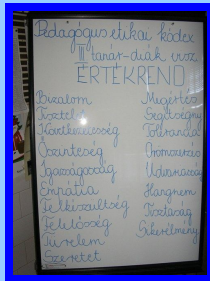 Pedagógus etikai kódex
III tanár-diák visz.
ÉRTÉKREND
Bizalom
Tisztelet
Következetesség
Őszinteség
Igazságosság
Empátia
Felkészültség
Felelősség
Türelem
Szeretet
Megértés
Segítségny.
Tolerancia
Udvariasság
Hangnem
Tisztaság
Sikerélmény